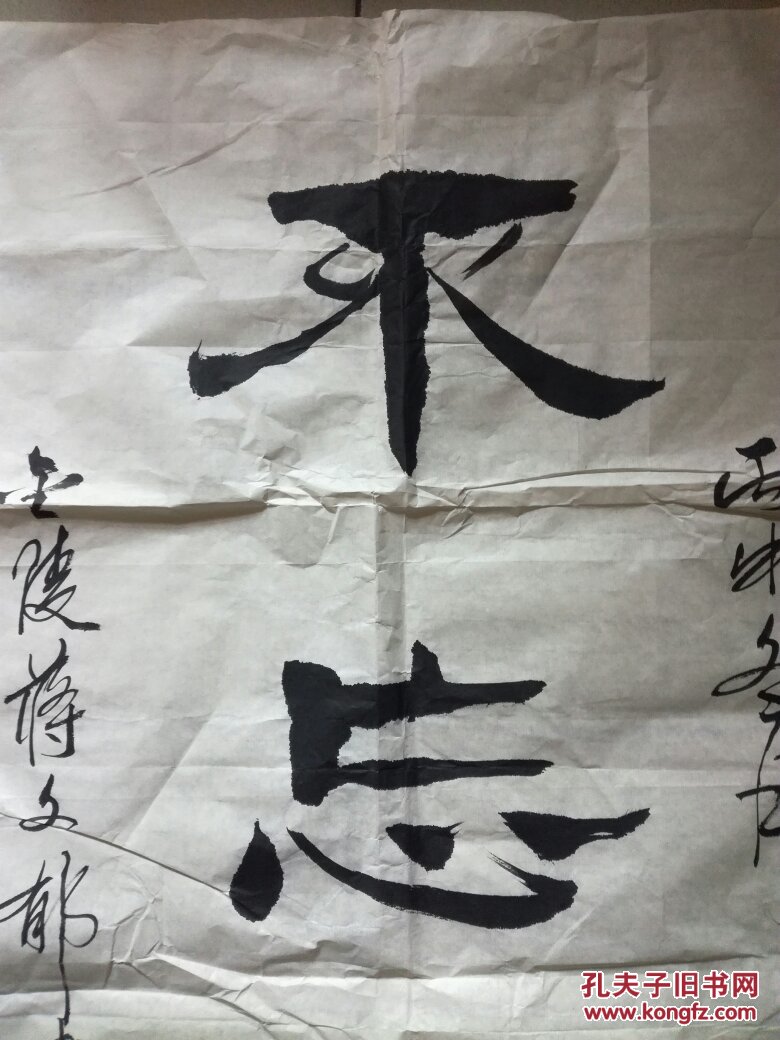 丙申
不忘
金陵蒋文郁
孔夫子旧书网
www.kongfz.com